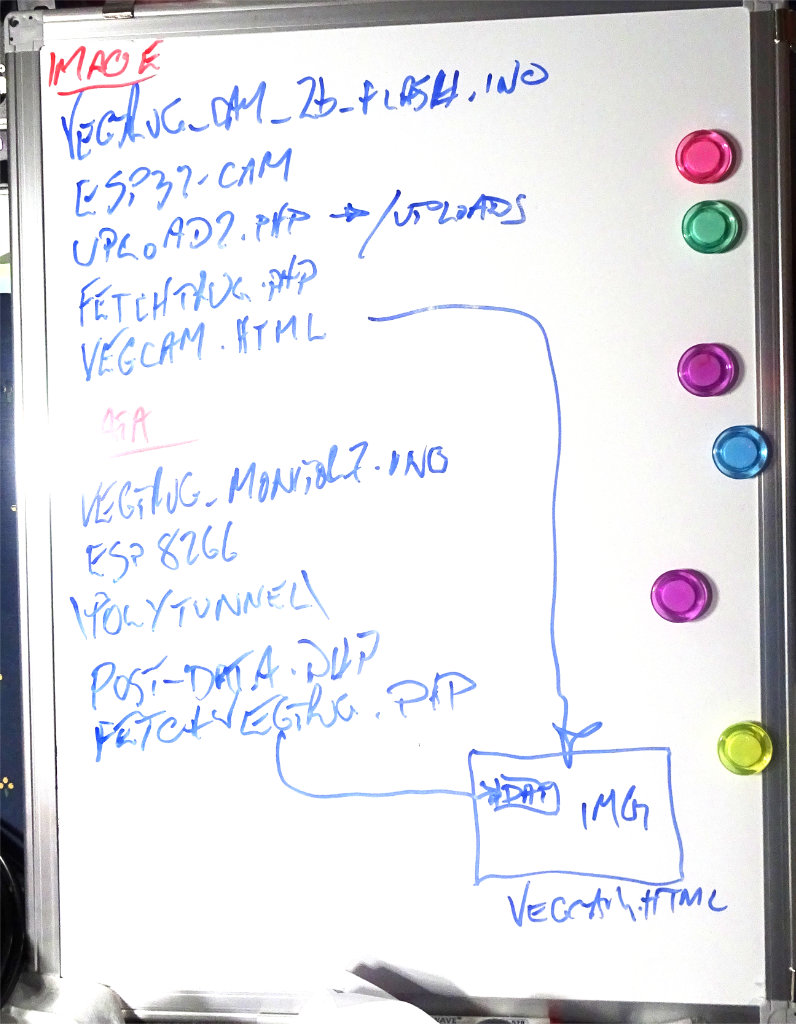 IMAGE
VEGTRUG_CAM_2b_FLASH.INO
ESP32-CAM
UPLOAD2.PHP → /UPLOADS
FETCHTRUG.PHP
VEGCAM.HTML
VEGTRUG_MONITOR2.INO
ESP8266
\POLYTUNNEL\
POST-DATA.PHP
FETCHVEGTRUG.PHP
DAT
IMG
VEGCAM.HTML